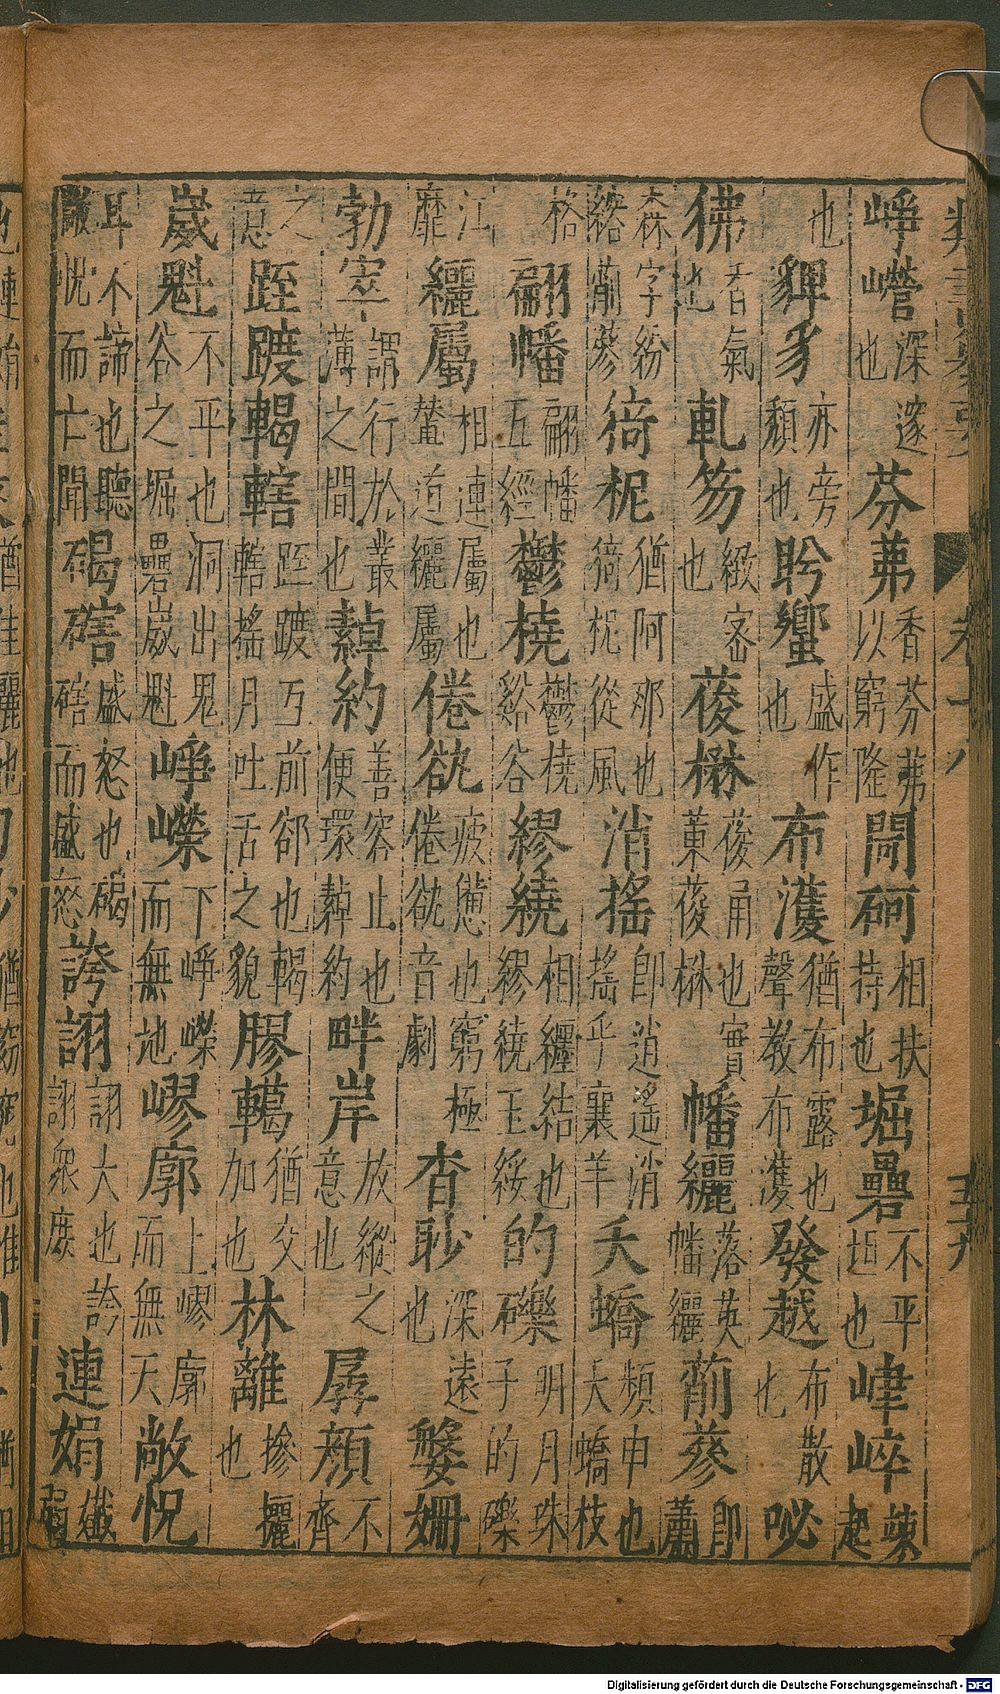 崢嶜深邃也芬茀香芬茀以窮隆閜砢相扶持也堀礨不平也崒崪竦起
也貏豸亦旁頹也肸蠁盛作也布濩猶布露也聲教布濩發越布散也咇
茀香氣也軋芴緻密也葰楙葰甬也實葉葰楙幡纚落英幡纚萷蔘即蕭
森字紛綹萷蔘猗柅猶阿那也猗柅從風消搖即逍遙消搖乎襄羊夭蟜頻申也夭蟜枝
格翩幡翩幡互經鬱橈鬱橈谿谷繆繞相纏結也繆繞玉綏的礫明月珠子的礫
江靡纚屬相連屬也輦道纚屬倦㕁疲憊也窮極倦㕁音劇杳眇深遠也媻姍
勃窣謂行於叢薄之間也繛約善容止也便環繛約畔岸放縱之意也孱顏不齊
之意踁踱輵轄踁踱互前郤也輵轄搖月吐舌之貌膠輵猶交加也林離摻攦也
崴魁不平也洞出鬼谷之堀礨崴魁崢嶸下崢嶸而無地嵺廓上嵺廓而無天敞怳
耳不諦也聽敞怳而亡聞碣磍盛怒也碣磍而盛怒誇詡詡大也誇詡衆庶連娟孅弱
Digitalisierung gefördert durch die Deutsche Forschungsgemeinschaft - DFG